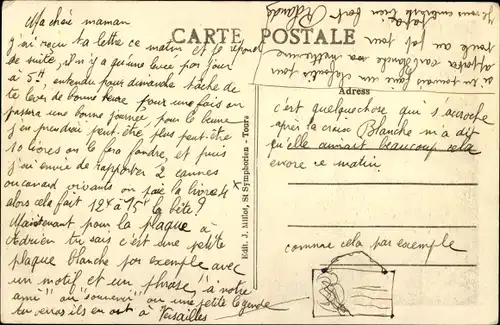 Ma chère maman
j'ai reçu ta lettre ce matin et je réponds
de suite, il n'y a qu'une levée par jour
à 5H, entendu pour dimanche tâche de
te lever de bonne heure pour une fois on
passera une bonne journée pour le beurre
j'en prendrai peut-être plus peut-être
10 livres on le fera fondre, et puis
j'ai envie de rapporter 2 cannes
ou canard vivants on paie la livre 4F
alors cela fait 12F à 15F la bête?
Maintenant pour la plaque à
Adrien tu sais c'est une petite
plaque blanche par exemple avec
un motif et un phrase, "à notre
ami" ou "souvenir" ou une petite légende
tu verras ils en ont à Versailles
CARTE POSTALE
Adress
Edit. J. Millot, St Symphorien - Tours
c'est quelque chose qui s'accroche
après la croix Blanche m'a dit
qu'elle aimait beaucoup cela
encore ce matin.
comme cela par exemple
si tu pouvais faire un
apporter
Je vous embrasse bien fort
Rolande